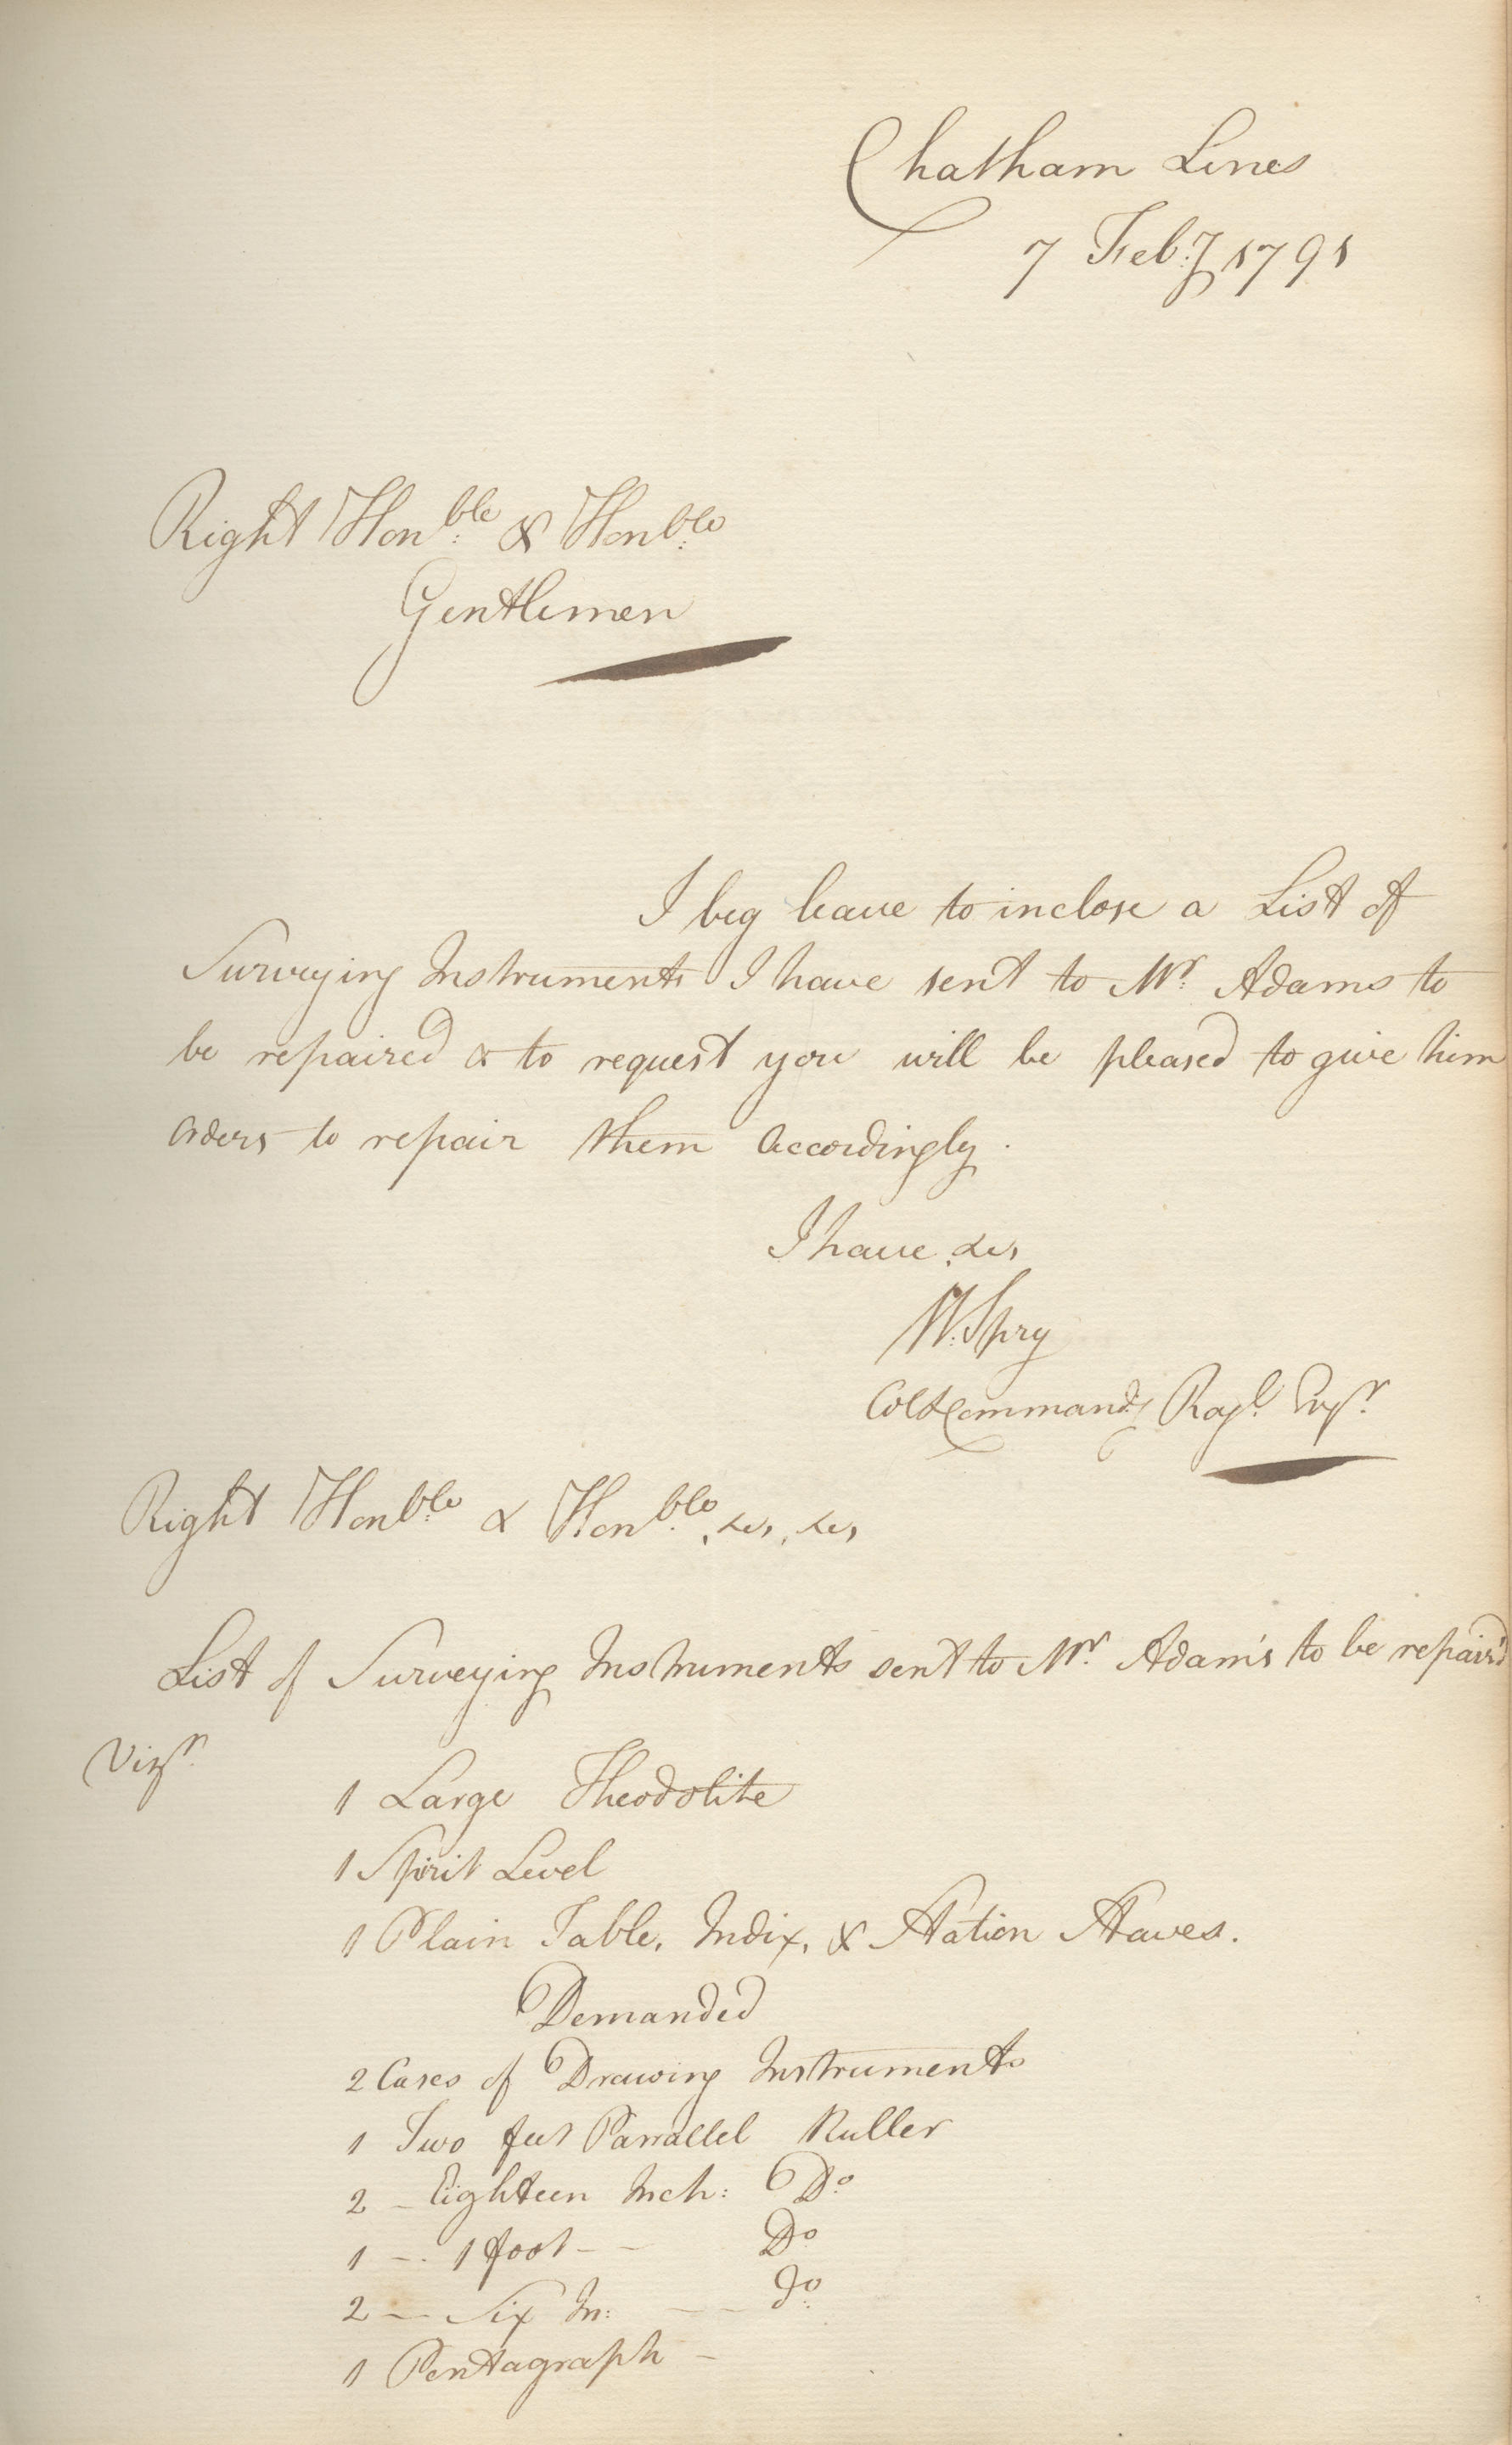 Chatham Lines
7 Feb:y 1791
Right Honble: & Honble:
Gentlemen
I beg leave to inclose a List of
Surveying Instruments I have sent to Mr. Adams to
be repaired & to request you will be pleased to give him
orders to repair them accordingly.
I have &c,
W. Spry
Col Command:g Royl. Engr.
Right Honble: & Honble: &c, &c,
List of Surveying Instruments sent to Mr. Adam's to be repair'd
Vizt.
1 Large Theodolite
1 Spirit Level
1 Plain Table, Index, & Station Staves.
Demanded
2 Cases of Drawing Instruments
1 Two feet Parrallel Ruller
2 - Eighteen Inch: Do
1 - 1 foot - - Do
2 - Six In: - - Do
1 Pentagraph -